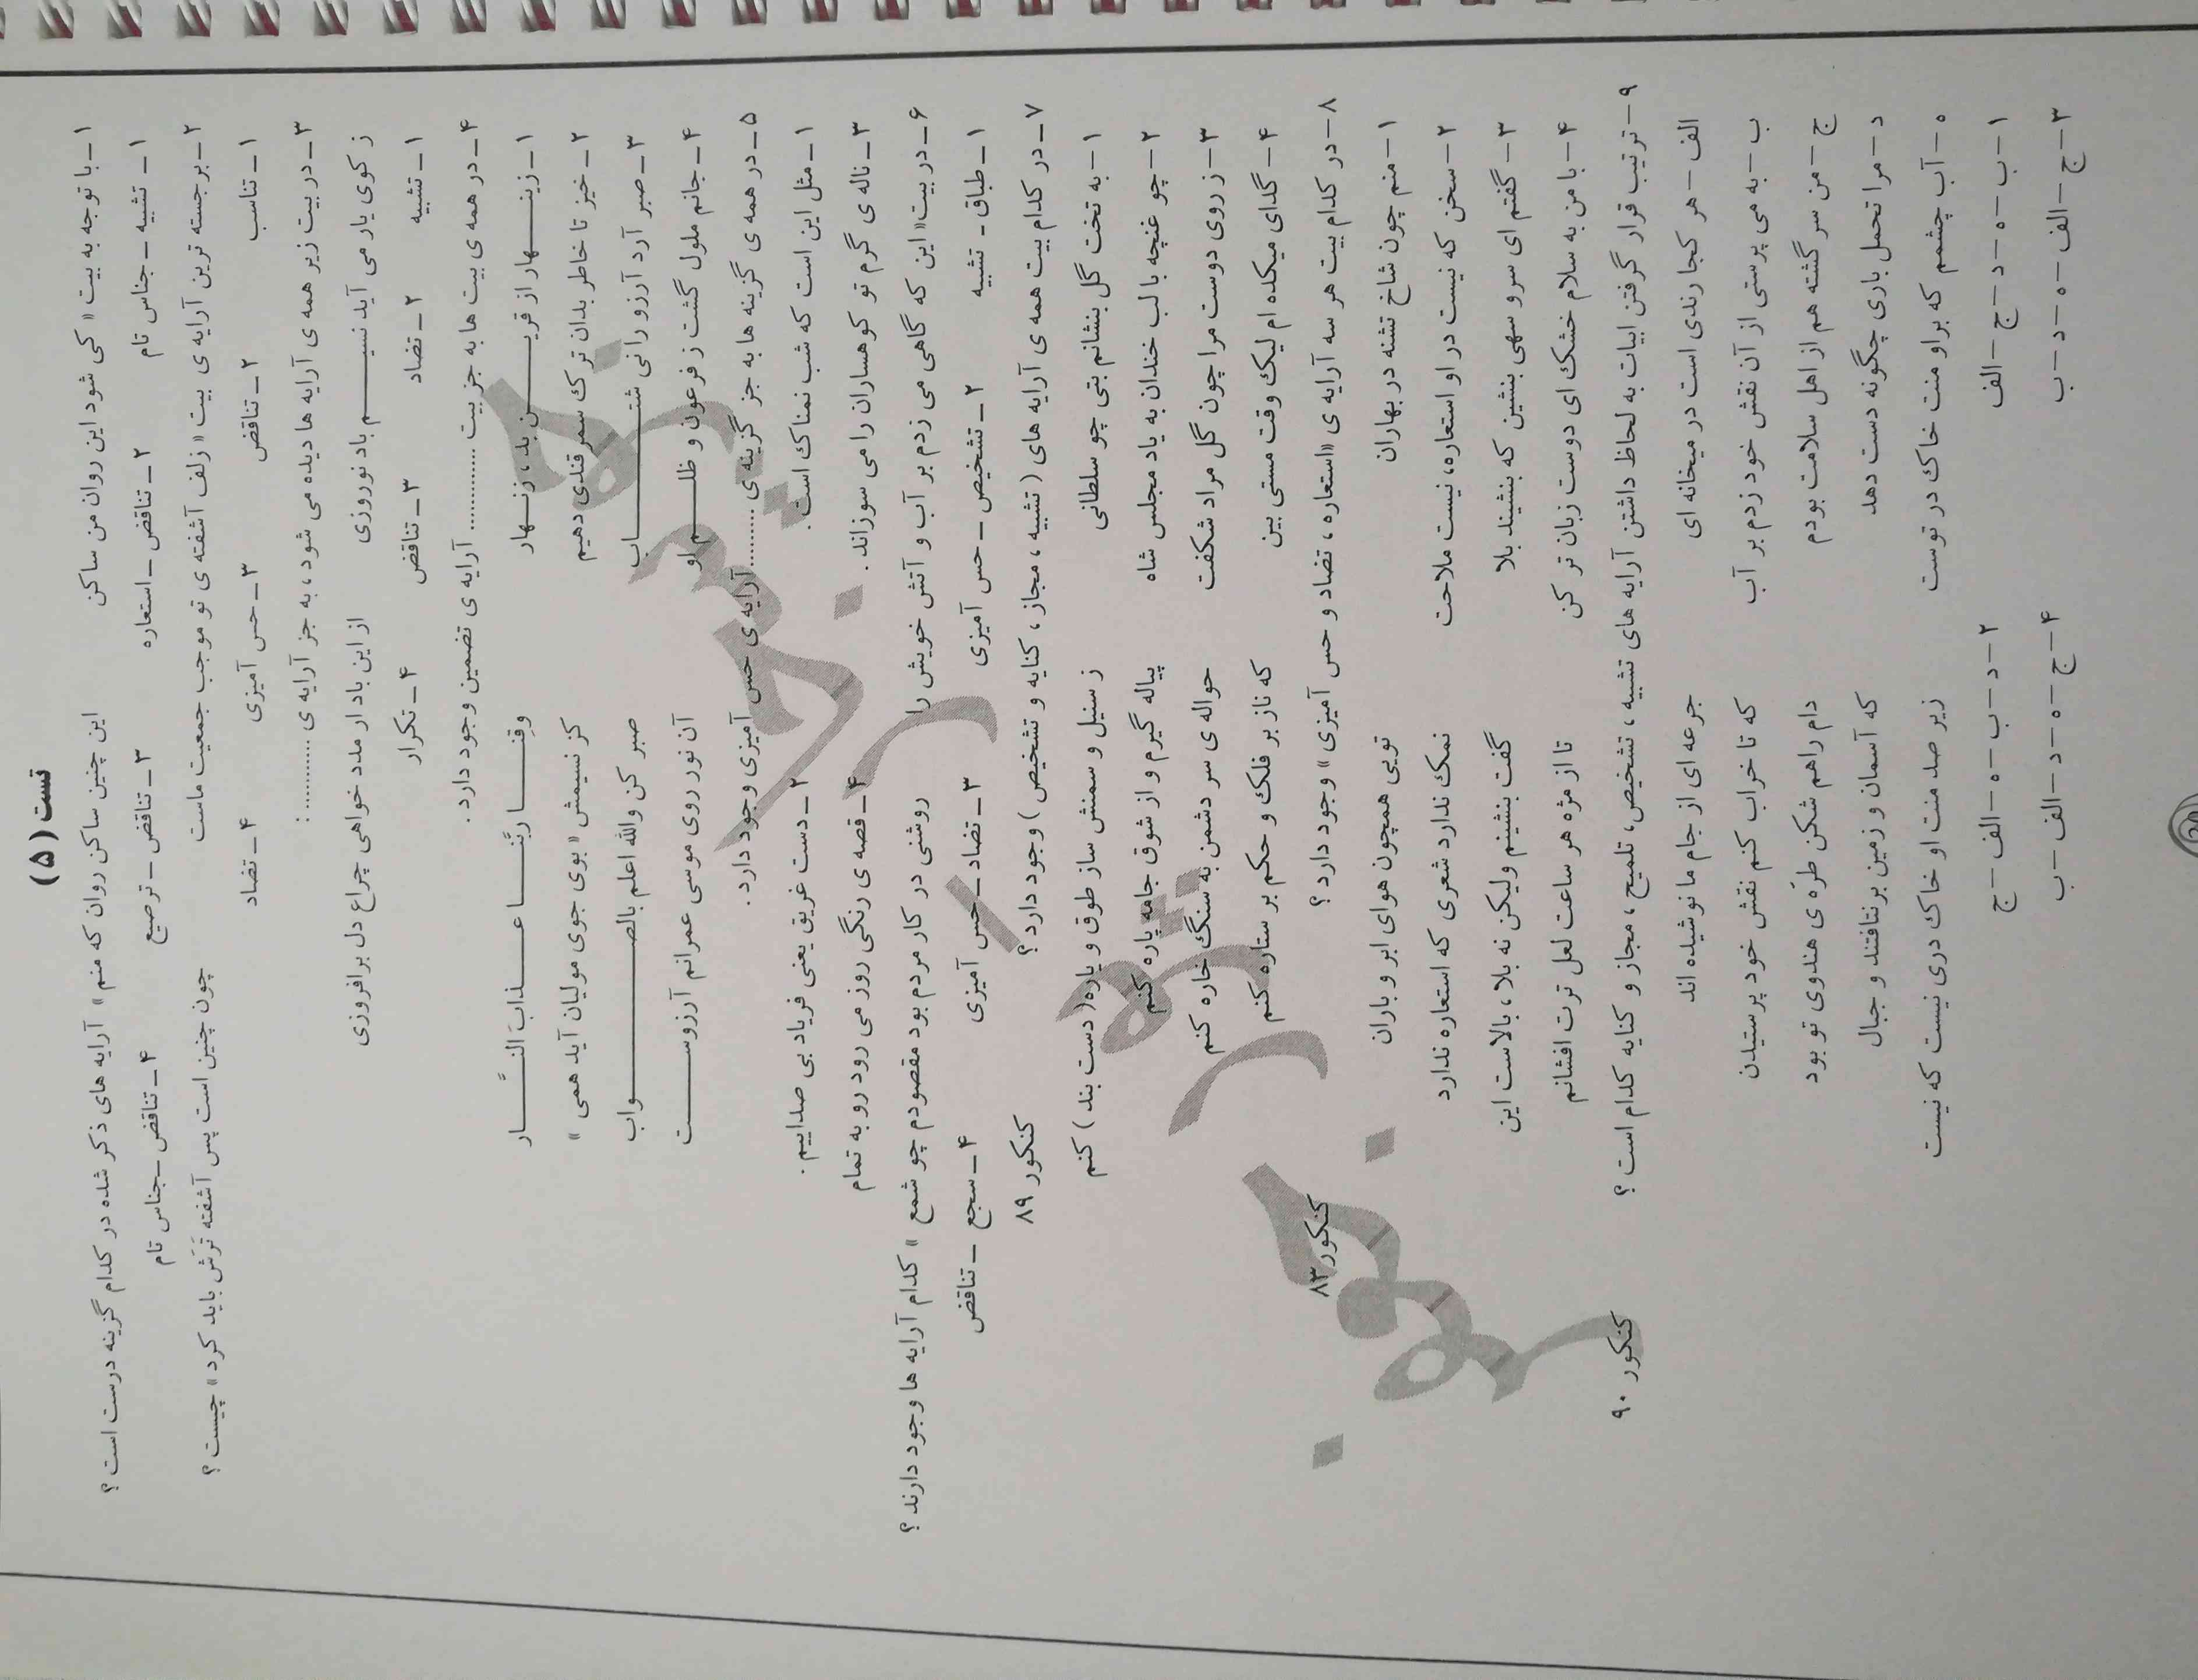 تست (۵)
۱_با توجه به بیت « کی شود این روان من ساکن این چنین ساکن روان که منم » آرایه های ذکر شده در کدام گزینه درست است ؟
۱_ تشبیه _ جناس تام ۲_ تناقض _ استعاره ۳_ تناقض _ ترصیع ۴_ تناقض _جناس تام
۲_برجسته ترین آرایه ی بیت « زلف آشفته ی تو موجب جمعیت ماست چون چنین است پس آشفته تَرَش باید کرد » چیست ؟
۱_ تناسب ۲_ تناقض ۳_ حس آمیزی ۴_ تضاد
۳_در بیت زیر همه ی آرایه ها دیده می شود ، به جز آرایه ی ............ :
ز کوی یار می آید نسیــــم باد نوروزی از این باد ار مدد خواهی چراغ دل برافروزی
۱_ تشبیه ۲_ تضاد ۳_ تناقض ۴_ تکرار
۴_در همه ی بیت ها به جز بیت ............ آرایه ی تضمین وجود دارد .
۱_ زینـــهار از قریــــن بد ، زنـــهار وقِنــــا ربَّنــــا عــــذابَ النــــَّار
۲_ خیز تا خاطر بدان ترک سمرقندی دهیم کز نسیمش « بوی جوی مولیان آید همی »
۳_ صبر آرد آرزو را نی شتــــاب صبر کن والله اعلم بالصــــواب
۴_ جانم ملول گشت ز فرعون و ظلــــم او آن نور روی موسی عمرانم آرزوســــت
۵_در همه ی گزینه ها به جز گزینه ی ............آرایه ی حس آمیزی وجود دارد .
۱_ مثل این است که شب نمناک است . ۲_ دست غریق یعنی فریاد بی صداییم .
۳_ ناله ی گرم تو کوهساران را می سوزاند . ۴_ قصه ی رنگی روز می رود رو به تمام
۶_در بیت« این که گاهی می زدم بر آب و آتش خویش را روشنی در کار مردم بود مقصودم چو شمع » کدام آرایه ها وجود دارند ؟
۱_ طباق_ تشبیه ۲_ تشخیص _ حس آمیزی ۳_ تضاد_ حس آمیزی ۴_ سجع _ تناقض
۷_در کدام بیت همه ی آرایه های ( تشبیه ، مجاز ، کنایه و تشخیص ) وجود دارد ؟ کنکور ۸۹
۱- به تخت گل بنشانم بتی چو سلطانی ز سنبل و سمنش ساز طوق و یاره( دست بند ) کنم
۲- چو غنچه با لب خندان به یاد مجلس شاه پیاله گیرم و از شوق جامه پاره کنم
۳- ز روی دوست مرا چون گل مراد شکفت حواله ی سر دشمن به سنگ خاره کنم
۴- گدای میکده ام لیک وقت مستی بین که ناز بر فلک و حکم بر ستاره کنم
۸- در کدام بیت هر سه آرایه ی «استعاره ، تضاد و حس آمیزی» وجود دارد ؟ کنکور ۸۳
۱- منم چون شاخ تشنه در بهاران تویی همچون هوای ابر و باران
۲- سخن که نیست در او استعاره، نیست ملاحت نمک ندارد شعری که استعاره ندارد
۳- گفتم ای سرو سهی بنشین که بنشیند بلا گفت بنشینم ولیکن نه بلا ، بالاست این
۴- با من به سلام خشک ای دوست زبان تر کن تا از مژه هر ساعت لعل ترت افشانم
۹- ترتیب قرار گرفتن ابیات به لحاظ داشتن آرایه های تشبیه ، تشخیص، تلمیح ، مجاز و کنایه کدام است ؟ کنکور ۹۰
الف - هر کجا رندی است در میخانه ای جرعه ای از جام ما نوشیده اند
ب - به می پرستی از آن نقش خود زدم بر آب که تا خراب کنم نقش خود پرستیدن
ج - من سر گشته هم از اهل سلامت بودم دام راهم شکن طرّه ی هندوی تو بود
د - مرا تحمل باری چگونه دست دهد که آسمان و زمین برنتافتند و جبال
ه - آب چشمم که براو منت خاک در توست زیر صد منت او خاک دری نیست که نیست
۱- ب - ه - د - ج - الف ۲- د - ب - ه - الف - ج
۳- ج - الف - ه - د - ب ۴- ج - ه - د - الف - ب